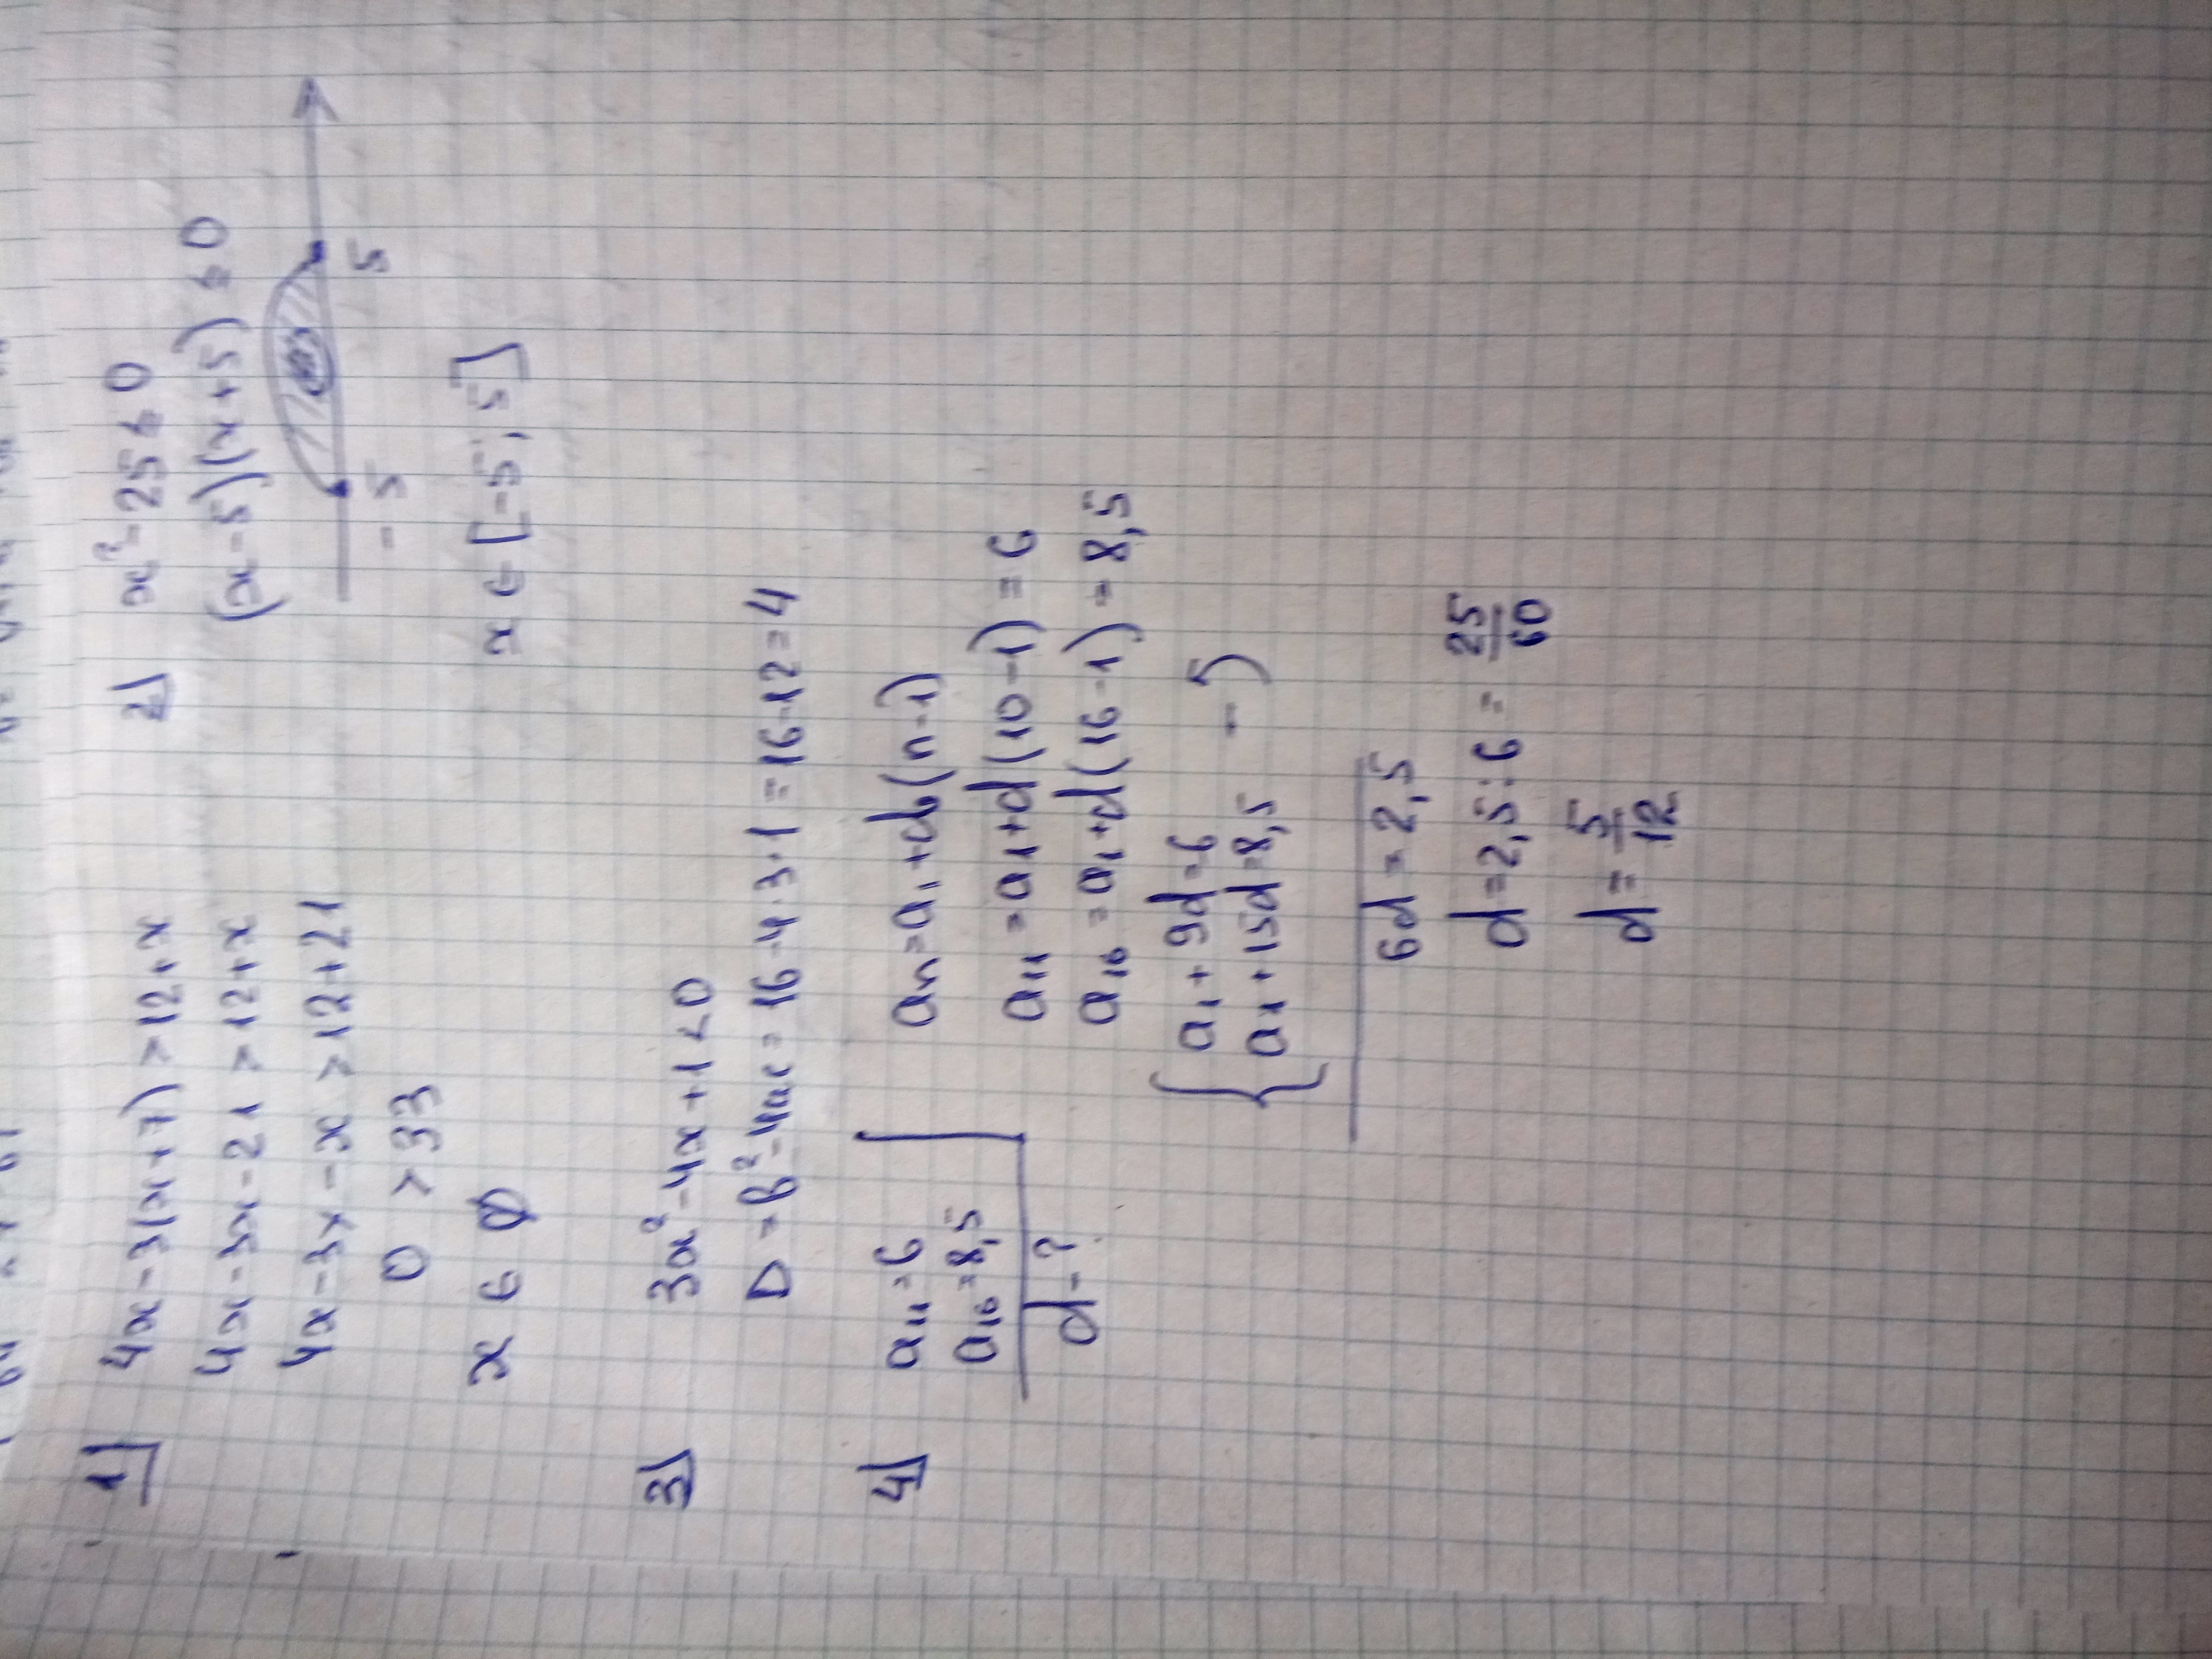 1) 4x-3(x+7)>12+x
4x-3x-21>12+x
4x-3x-x>12+21
0>33
x∈∅
2) x²-25≤0
(x-5)(x+5)≤0
-5 5
x∈[-5;5]
3) 3x²-4x+1<0
D=b²-4ac=16-4·3·1=16-12=4
4) a₁₁=6
a₁₆=8,5
d-?
aₙ=a₁+d(n-1)
a₁₁=a₁+d(10-1)=6
a₁₆=a₁+d(16-1)=8,5
{a₁+9d=6
a₁+15d=8,5 -)
6d=2,5
d=2,5:6=25/60
d=5/12